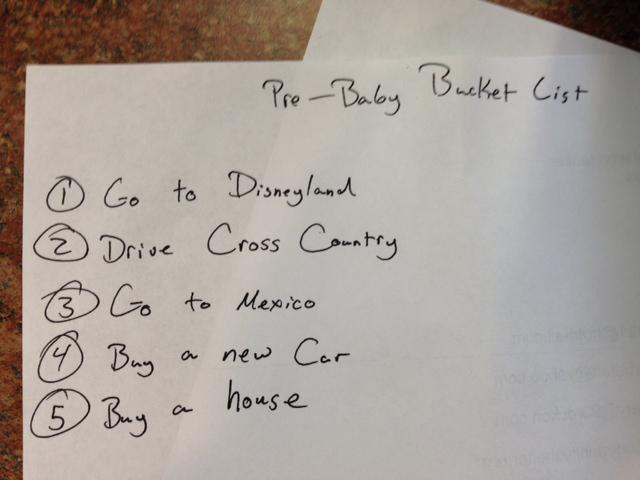 Pre-Baby Bucket List
① Go to Disneyland
② Drive Cross Country
③ Go to Mexico
④ Buy a new Car
⑤ Buy a house